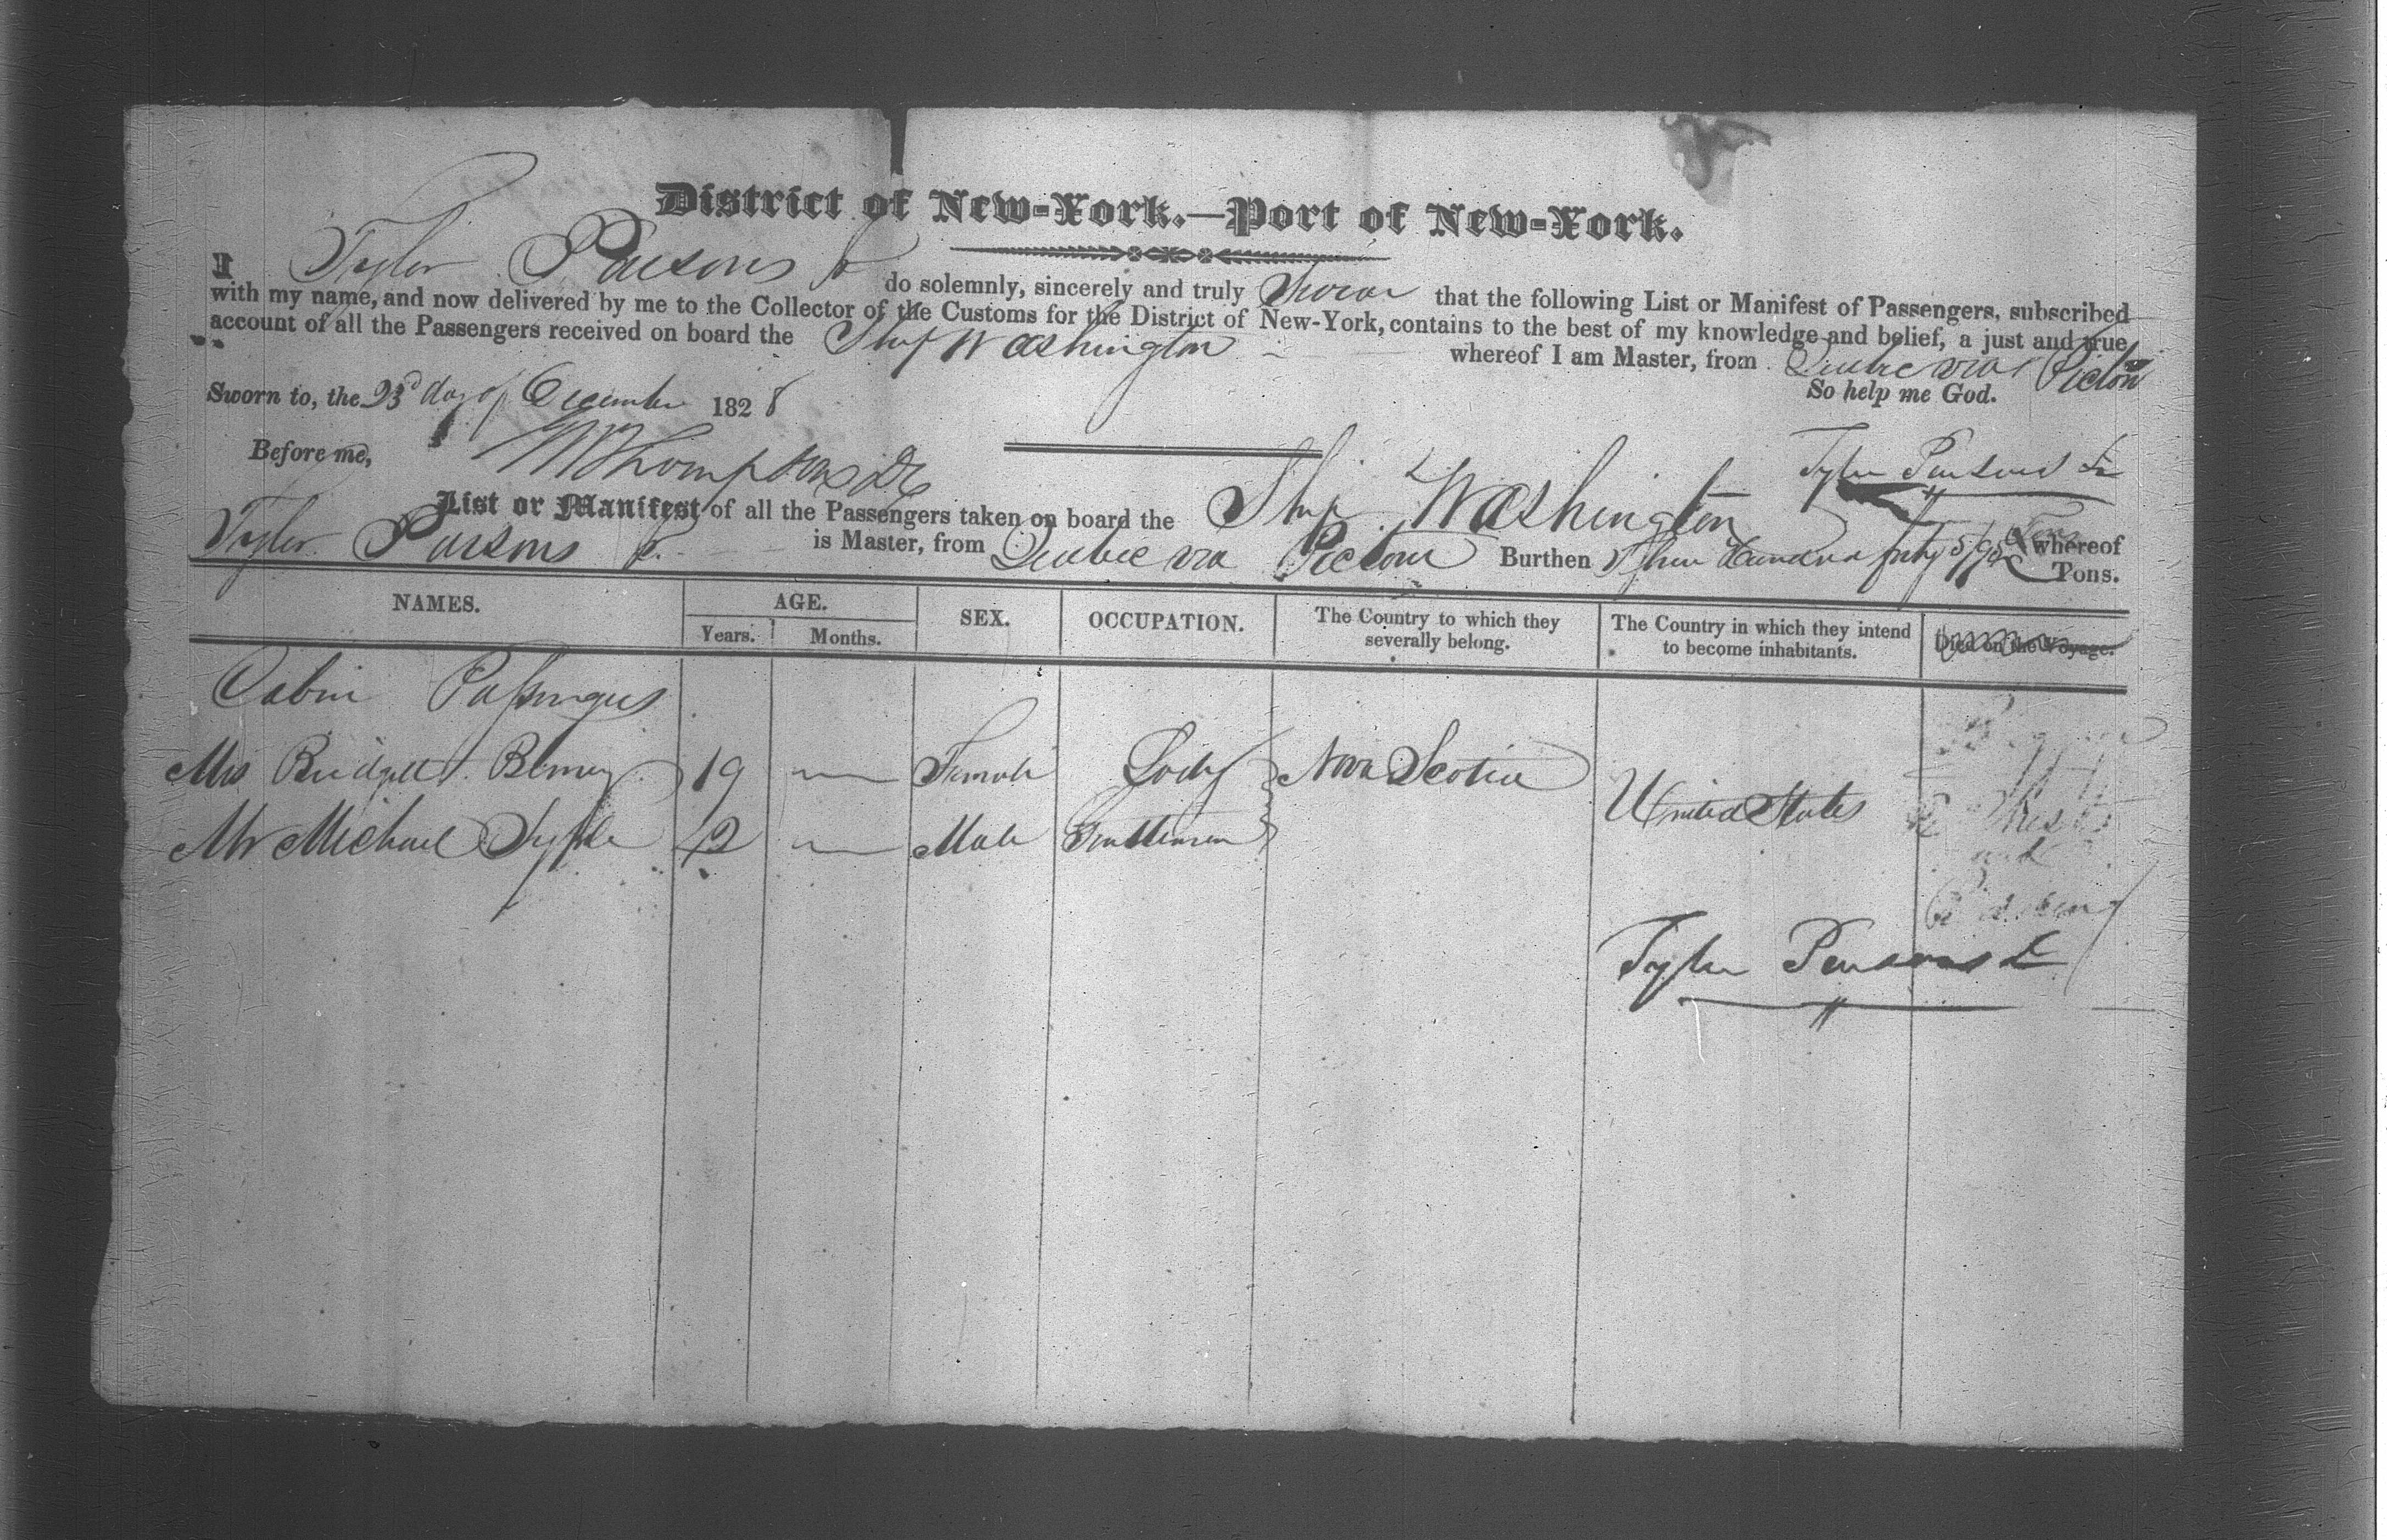 District of New-York.—Port of New-York.
I Tyler Parsons Jr do solemnly, sincerely and truly Swear that the following List or Manifest of Passengers, subscribed
with my name, and now delivered by me to the Collector of the Customs for the District of New-York, contains to the best of my knowledge and belief, a just and true
account of all the Passengers received on board the Ship Washington whereof I am Master, from Quebec via Pictou
So help me God.
Sworn to, the 23d day of December 1828
Before me, Thompson
Tyler Parsons Jr
List or Manifest of all the Passengers taken on board the Ship Washington whereof
Tyler Parsons Jr is Master, from Quebec via Pictou Burthen Three Hundred forty 5/95 Tons.
NAMES. AGE. SEX. OCCUPATION. The Country to which they severally belong. The Country in which they intend to become inhabitants. Died on the Voyage.
Years. Months.
Cabin Passengers
Mrs Bridgett 19 — Female Lady Nova Scotia
United States
Mr Michael 42 — Male Gentleman
and
Tyler Parsons Jr